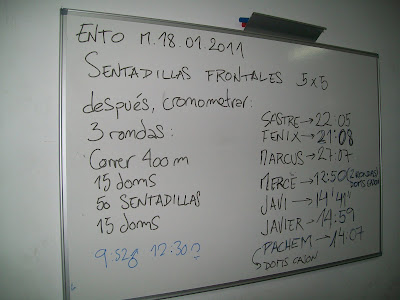 ENTO M.18.01.2011
SENTADILLAS FRONTALES 5x5
después, cronometrar:
3 rondas:
Correr 400 m
15 doms
50 SENTADILLAS
15 doms
9:52♂ 12:30♀
SASTRE→22:05
FENIX→21:08
MARCUS→27:07
MERCÈ→12:50 (2 RONDAS) DOMS CAJON
JAVI→14'41"
JAVIER→14:59
PACHEM→14:07
↳DOMS CAJON